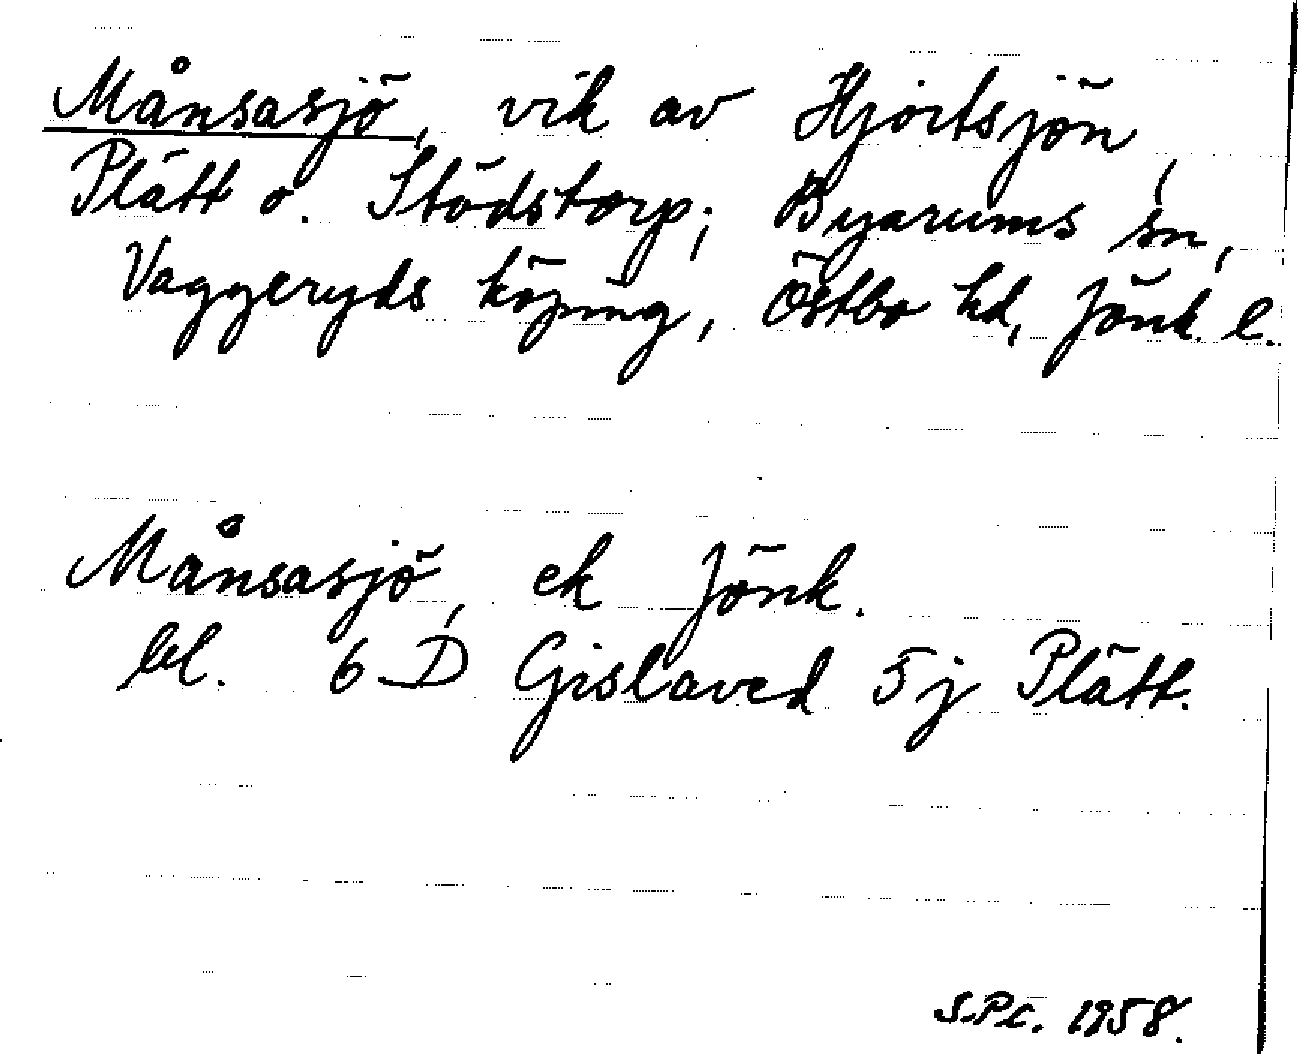 Månsasjö, vik av Hjortsjön,
Plätt o. Stödstorp; Byarums sn,
Vaggeryds köping, Östbo hd, Jönk. l.
Månsasjö, ek Jönk.
bl. 6 D Gislaved 5j Plätt.
1958.